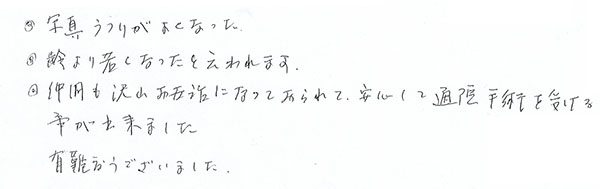 ③ 写真うつりがよくなった
④ 齢より若くなったと云われます.
⑤ 仲間も沢山お世話になっておられて、安心して通院手術を受ける
事が出来ました
有難うございました.